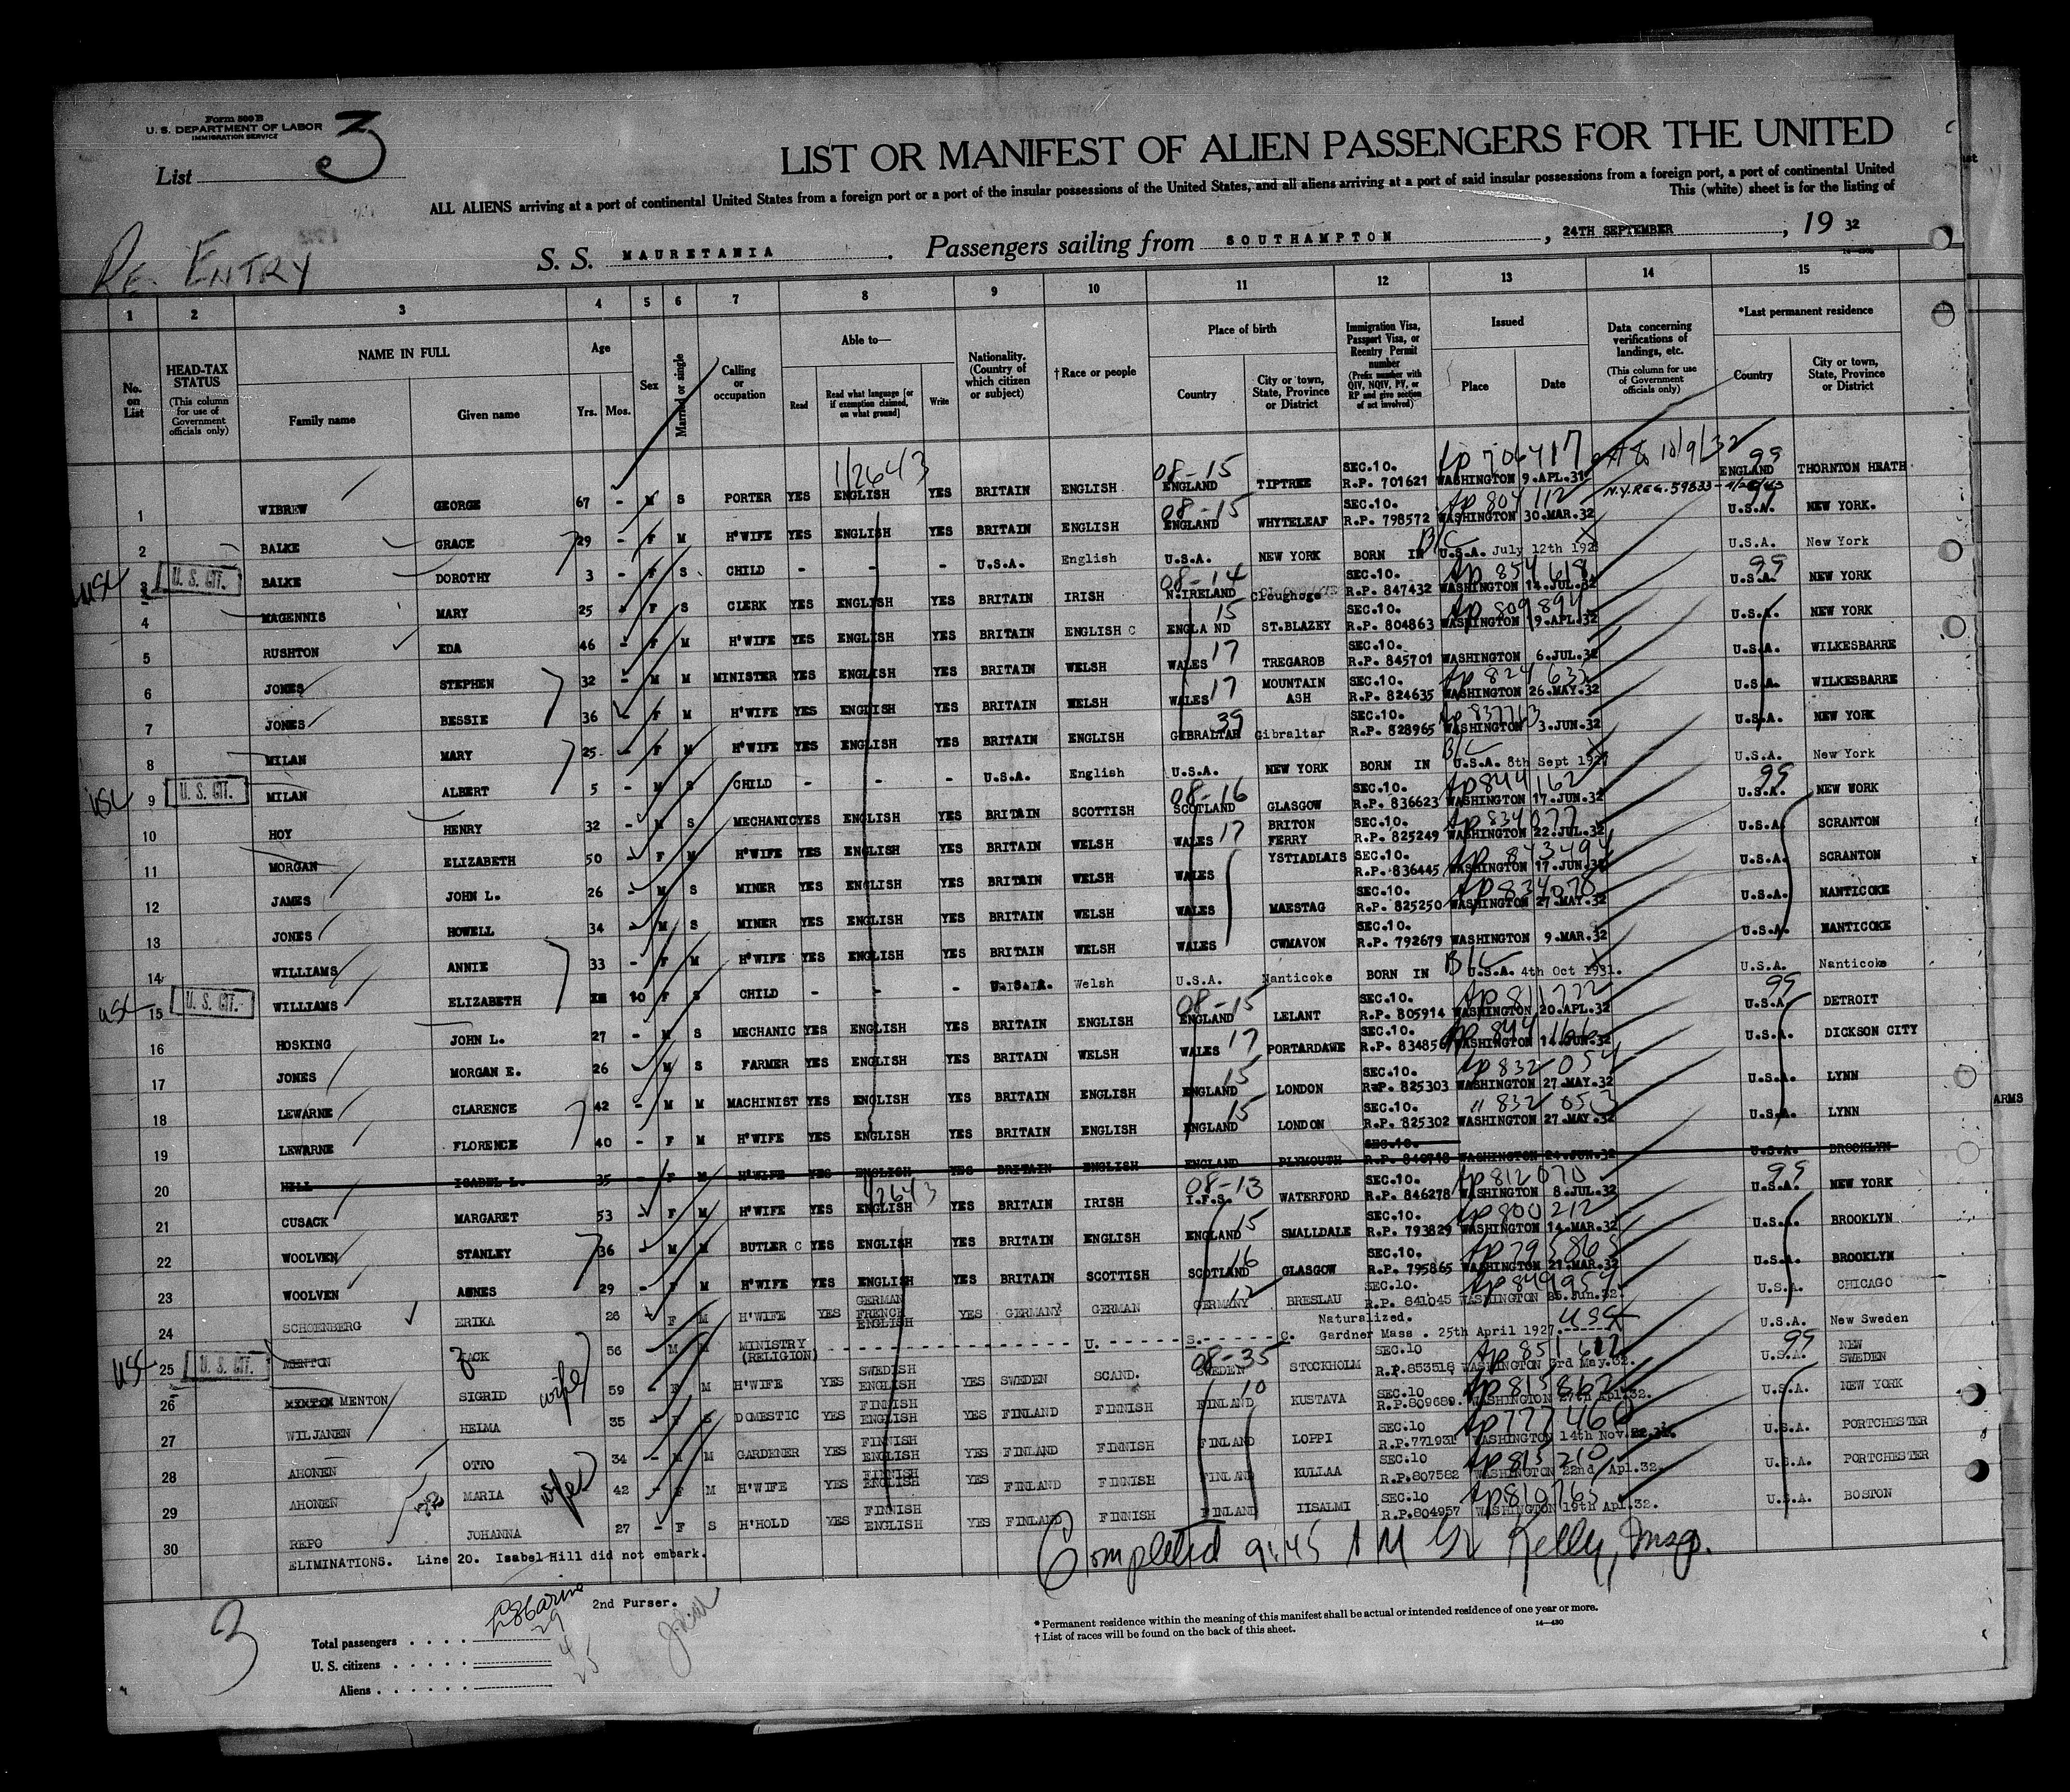 Form 500 B
U. S. DEPARTMENT OF LABOR
IMMIGRATION SERVICE
List 3
LIST OR MANIFEST OF ALIEN PASSENGERS FOR THE UNITED
ALL ALIENS arriving at a port of continental United States from a foreign port or a port of the insular possessions of the United States, and all aliens arriving at a port of said insular possessions from a foreign port, a port of continental United
This (white) sheet is for the listing of
RE-ENTRY
S. S. MAURETANIA. Passengers sailing from SOUTHAMPTON, 24TH SEPTEMBER, 19 32
1 2 3 4 5 6 7 8 9 10 11 12 13 14 15
No. on List
HEAD-TAX STATUS (This column for use of Government officials only)
NAME IN FULL Family name Given name
Age Yrs. Mos.
Sex
Married or single
Calling or occupation
Able to— Read Read what language [or if exemption claimed, on what ground] Write
Nationality. (Country of which citizen or subject)
†Race or people
Place of birth Country City or town, State, Province or District
Immigration Visa, Passport Visa, or Reentry Permit number (Prefix number with QIV, NQIV, PV, or RP and give section of act involved)
Issued Place Date
Data concerning verifications of landings, etc. (This column for use of Government officials only)
*Last permanent residence Country City or town, State, Province or District
1/2643 08-15 Ap 706417 10/9/32 99
1 WIBREW GEORGE 67 - M S PORTER YES ENGLISH YES BRITAIN ENGLISH ENGLAND TIPTREE SEC.10. R.P. 701621 WASHINGTON 9.APL.31 ENGLAND THORNTON HEATH
08-15 Ap 804112 N.Y.REG. 59833 99
2 BALKE GRACE 29 - F M H'WIFE YES ENGLISH YES BRITAIN ENGLISH ENGLAND WHYTELEAF SEC.10. R.P. 798572 WASHINGTON 30.MAR.32 U.S.A. NEW YORK.
USC 3 U. S. CIT. BALKE DOROTHY 3 - F S CHILD - - - U.S.A. English U.S.A. NEW YORK BORN IN B/C U.S.A. July 12th 192 U.S.A. New York
08-14 Ap 854618 99
4 MAGENNIS MARY 25 F S CLERK YES ENGLISH YES BRITAIN IRISH N.IRELAND Cloughoge SEC.10. R.P. 847432 WASHINGTON 14.JUL.32 U.S.A. NEW YORK
15 Ap 809894
5 RUSHTON EDA 46 - F M H'WIFE YES ENGLISH YES BRITAIN ENGLISH C ENGLAND ST.BLAZEY SEC.10. R.P. 804863 WASHINGTON 19.APL.32 U.S.A. NEW YORK
6 JONES STEPHEN 32 - M M MINISTER YES ENGLISH YES BRITAIN WELSH WALES 17 TREGAROB SEC.10. R.P. 845701 WASHINGTON 6.JUL.32 U.S.A. WILKESBARRE
Ap 824635
7 JONES BESSIE 36 - F M H'WIFE YES ENGLISH YES BRITAIN WELSH WALES 17 MOUNTAIN ASH SEC.10. R.P. 824635 WASHINGTON 26.MAY.32 U.S.A. WILKESBARRE
39 Ap 837713
8 MILAN MARY 25 - F M H'WIFE YES ENGLISH YES BRITAIN ENGLISH GIBRALTAR Gibraltar SEC.10. R.P. 828965 WASHINGTON 3.JUN.32 U.S.A. NEW YORK
USC 9 U. S. CIT. MILAN ALBERT 5 - M S CHILD - - - U.S.A. English U.S.A. NEW YORK BORN IN B/C U.S.A. 8th Sept 1927 U.S.A. New York
08-16 Ap 844162 99
10 HOY HENRY 32 - M S MECHANIC YES ENGLISH YES BRITAIN SCOTTISH SCOTLAND GLASGOW SEC.10. R.P. 836623 WASHINGTON 17.JUN.32 U.S.A. NEW WORK
Ap 834077
11 MORGAN ELIZABETH 50 - F M H'WIFE YES ENGLISH YES BRITAIN WELSH WALES 17 BRITON FERRY SEC.10. R.P. 825249 WASHINGTON 22.JUL.32 U.S.A. SCRANTON
Ap 843494
12 JAMES JOHN L. 26 - M S MINER YES ENGLISH YES BRITAIN WELSH WALES YSTIADLAIS SEC.10. R.P. 836445 WASHINGTON 17.JUN.32 U.S.A. SCRANTON
Ap 834078
13 JONES HOWELL 34 - M S MINER YES ENGLISH YES BRITAIN WELSH WALES MAESTAG SEC.10. R.P. 825250 WASHINGTON 27.MAY.32 U.S.A. NANTICOKE
14 WILLIAMS ANNIE 33 - F M H'WIFE YES ENGLISH YES BRITAIN WELSH WALES CWMAVON SEC.10. R.P. 792679 WASHINGTON 9.MAR.32 U.S.A. NANTICOKE
USC 15 U. S. CIT. WILLIAMS ELIZABETH 10 F S CHILD - - - U.S.A. Welsh U.S.A. Nanticoke BORN IN B/C U.S.A. 4th Oct 1931. U.S.A. Nanticoke
08-15 Ap 811772 99
16 HOSKING JOHN L. 27 - M S MECHANIC YES ENGLISH YES BRITAIN ENGLISH ENGLAND LELANT SEC.10. R.P. 805914 WASHINGTON 20.APL.32 U.S.A. DETROIT
Ap 844166
17 JONES MORGAN E. 26 M S FARMER YES ENGLISH YES BRITAIN WELSH WALES 17 PORTARDAWE SEC.10. R.P. 834856 WASHINGTON 14.JUN.32 U.S.A. DICKSON CITY
15 Ap 832054
18 LEWARNE CLARENCE 42 - M M MACHINIST YES ENGLISH YES BRITAIN ENGLISH ENGLAND LONDON SEC.10. R.P. 825303 WASHINGTON 27.MAY.32 U.S.A. LYNN
15 " 832053
19 LEWARNE FLORENCE 40 - F M H'WIFE YES ENGLISH YES BRITAIN ENGLISH ENGLAND LONDON SEC.10. R.P. 825302 WASHINGTON 27.MAY.32 U.S.A. LYNN
20 HILL ISABEL L. 35 - F M H'WIFE YES ENGLISH YES BRITAIN ENGLISH ENGLAND PLYMOUTH SEC.10. R.P. 840748 WASHINGTON 24.JUN.32 U.S.A. BROOKLYN
08-13 Ap 812070 99
21 CUSACK MARGARET 53 - F M H'WIFE YES ENGLISH YES BRITAIN IRISH I.F.S. WATERFORD SEC.10. R.P. 846278 WASHINGTON 8.JUL.32 U.S.A. NEW YORK
15 Ap 800212
22 WOOLVEN STANLEY 36 - M M BUTLER C YES ENGLISH YES BRITAIN ENGLISH ENGLAND SMALLDALE SEC.10. R.P. 793829 WASHINGTON 14.MAR.32 U.S.A. BROOKLYN
16 Ap 795865
23 WOOLVEN AGNES 29 - F M H'WIFE YES ENGLISH YES BRITAIN SCOTTISH SCOTLAND GLASGOW SEC.10. R.P. 795865 WASHINGTON 21.MAR.32 U.S.A. BROOKLYN
12 Ap 849954
24 SCHOENBERG ERIKA 26 F M H'WIFE YES GERMAN FRENCH ENGLISH YES GERMANY GERMAN GERMANY BRESLAU SEC.10. R.P. 841045 WASHINGTON 25.Jun.32. U.S.A. CHICAGO
USC 25 U. S. CIT. MENTON JACK 56 - M M MINISTRY (RELIGION) U. S. C. Naturalized. Gardner Mass. 25th April 1927. U.S.A. New Sweden
wife 08-35 Ap 851612 99
26 MENTON SIGRID 59 - F M H'WIFE YES SWEDISH ENGLISH YES SWEDEN SCAND. SWEDEN STOCKHOLM SEC.10 R.P.853518 WASHINGTON 3rd May.32. U.S.A. NEW SWEDEN
10 Ap 815862
27 WILJANEN HELMA 35 - F S DOMESTIC YES FINNISH ENGLISH YES FINLAND FINNISH FINLAND KUSTAVA SEC.10 R.P.809689. WASHINGTON 27th Apl.32. U.S.A. NEW YORK
Ap 777460
28 AHONEN OTTO 34 - M M GARDENER YES FINNISH ENGLISH YES FINLAND FINNISH FINLAND LOPPI SEC.10 R.P.771931 WASHINGTON 14th Nov. U.S.A. PORTCHESTER
wife Ap 815210
29 AHONEN MARIA 42 - F M H'WIFE YES FINNISH ENGLISH YES FINLAND FINNISH FINLAND KULLAA SEC.10 R.P.807582 WASHINGTON 22nd Apl.32. U.S.A. PORTCHESTER
Ap 810765
30 REPO JOHANNA 27 - F S H'HOLD YES FINNISH ENGLISH YES FINLAND FINNISH FINLAND IISALMI SEC.10 R.P.804957 WASHINGTON 19th Apl.32. U.S.A. BOSTON
ELIMINATIONS. Line 20. Isabel Hill did not embark.
Completed 9:45 AM Kelly, Insp.
2nd Purser.
3
Total passengers . . . . 29
U. S. citizens . . . . . 4
Aliens . . . . . . 25
* Permanent residence within the meaning of this manifest shall be actual or intended residence of one year or more.
† List of races will be found on the back of this sheet.
14—430
ARMS